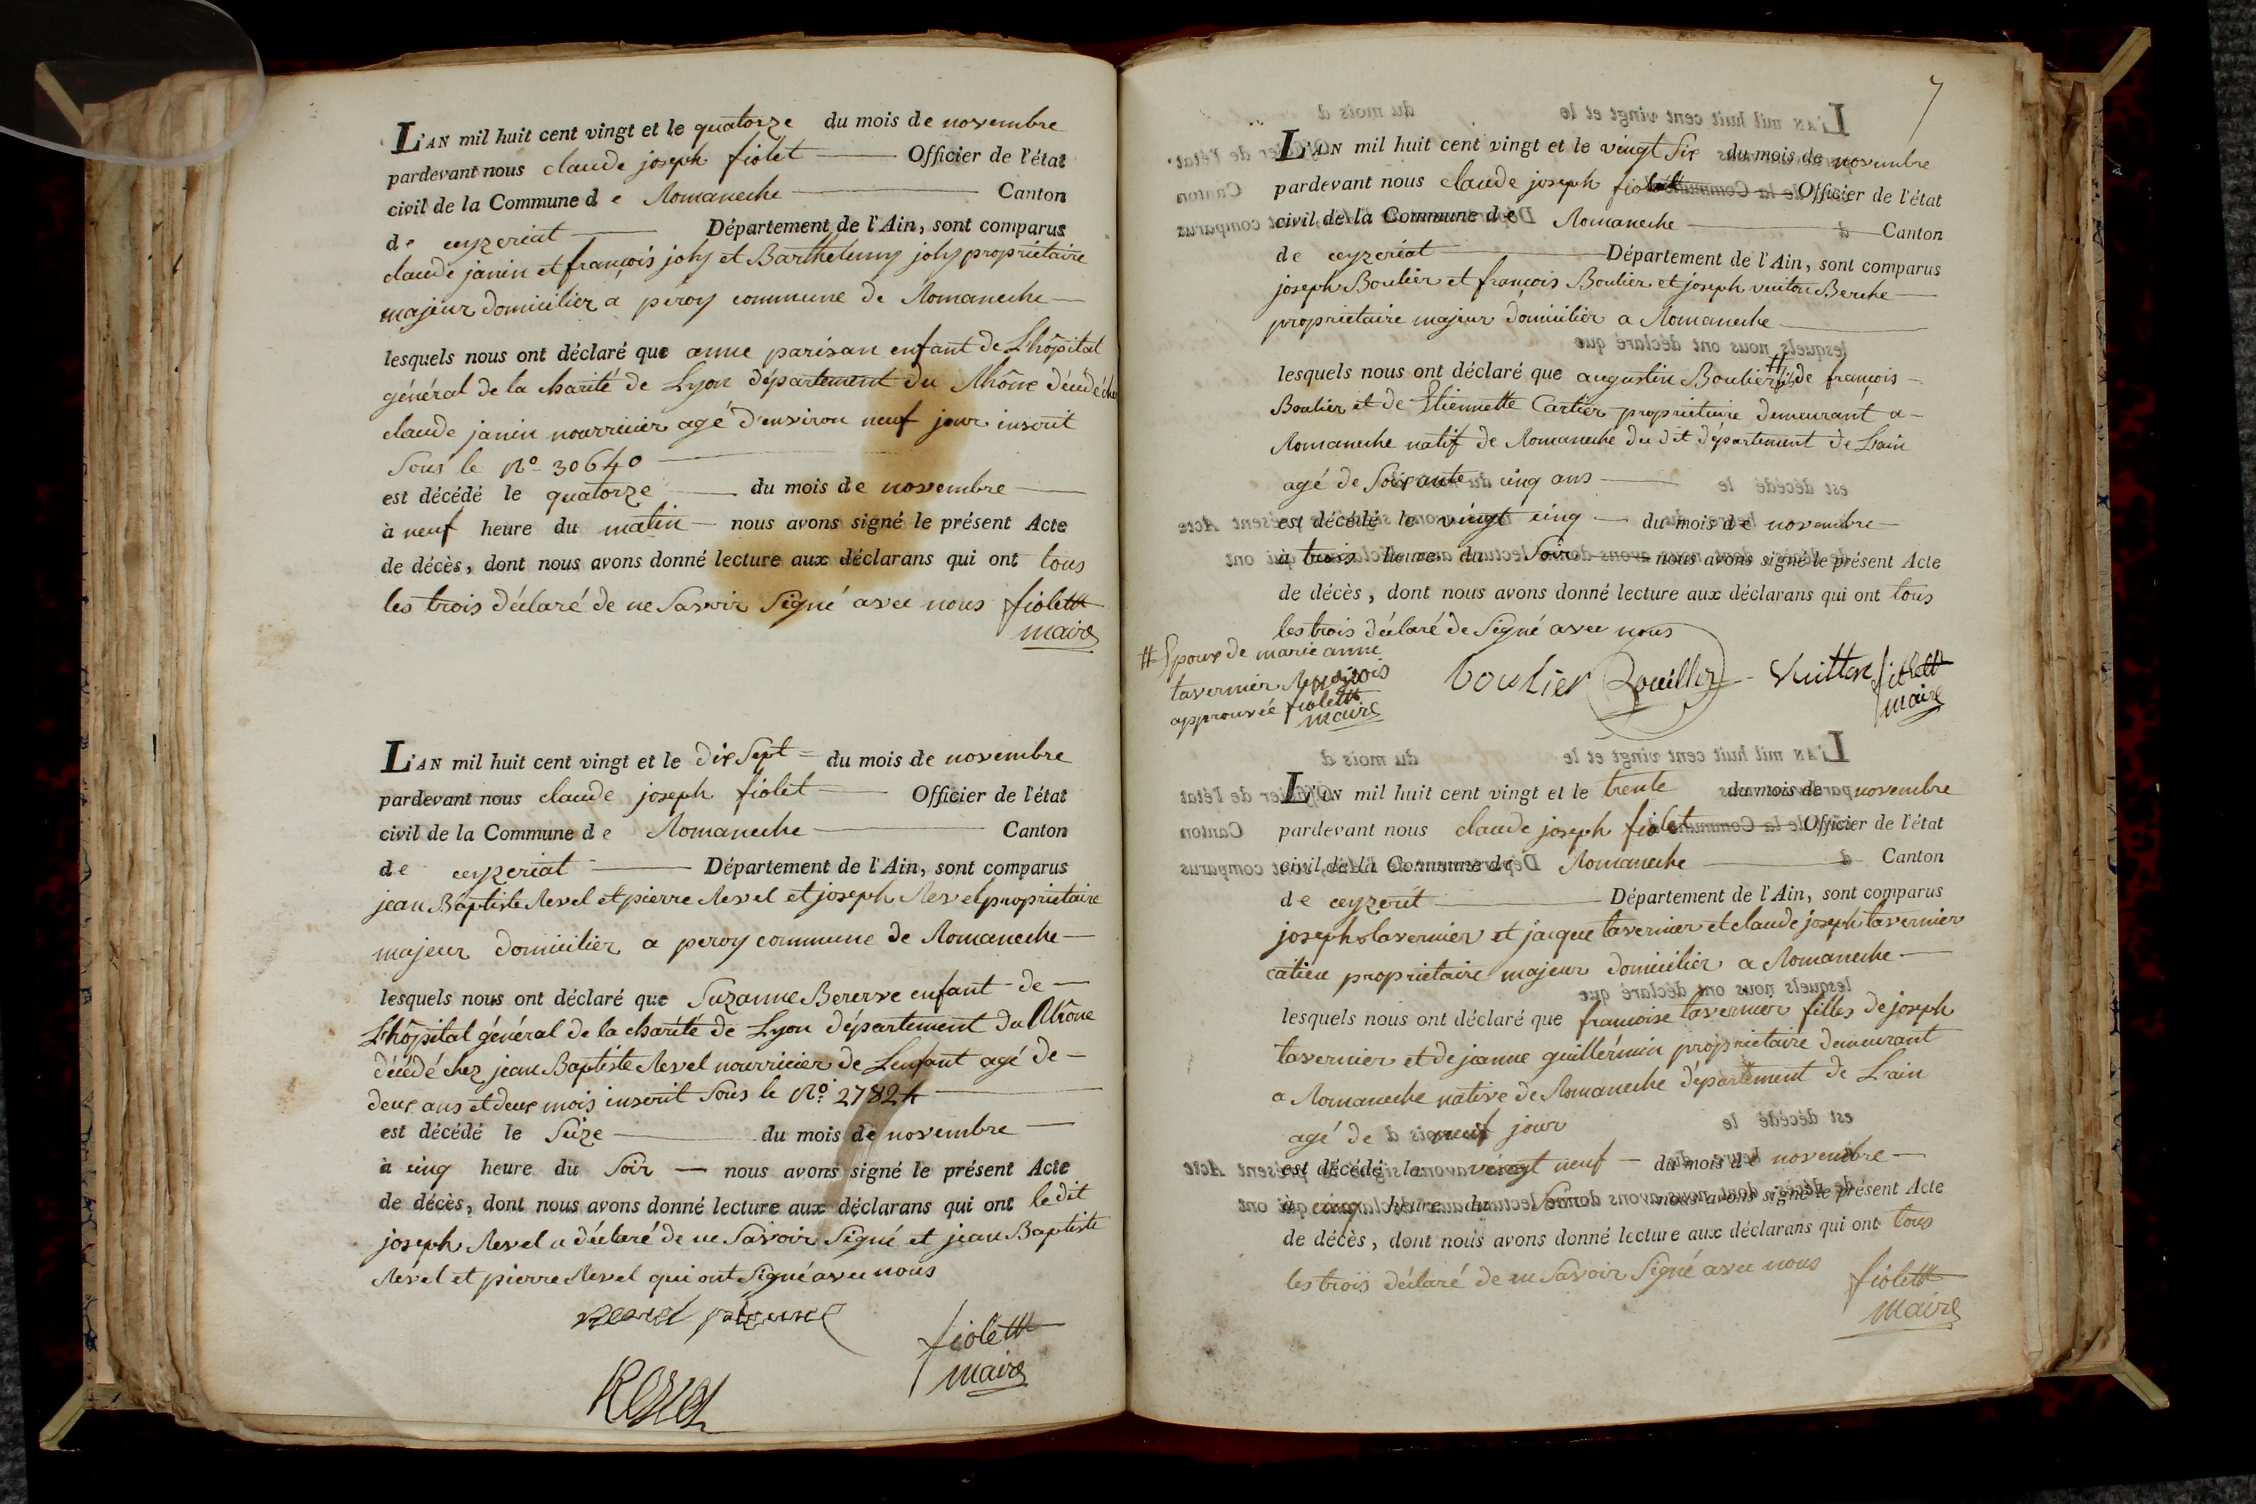 L'AN mil huit cent vingt et le quatorze du mois de novembre
pardevant nous claude joseph fiolet Officier de l'état
civil de la Commune de Romaneche Canton
de ceyzeriat Département de l'Ain, sont comparus
claude janin et françois joly et Barthelemy joly proprietaire
majeur domicilier a peroy commune de Romaneche
lesquels nous ont déclaré que anne parisan enfant de Lhôpital
général de la charité de Lyon département du Rhône décédé chez
claude janin nourricier agé d'environ neuf jour inscrit
Sous le No 30640
est décédé le quatorze du mois de novembre
à neuf heure du matin nous avons signé le présent Acte
de décès, dont nous avons donné lecture aux déclarans qui ont tous
les trois déclaré de ne Savoir Signé avec nous fiolett
maire
L'AN mil huit cent vingt et le dix Sept du mois de novembre
pardevant nous claude joseph fiolet Officier de l'état
civil de la Commune de Romaneche Canton
de ceyzeriat Département de l'Ain, sont comparus
jean Baptiste Revel et pierre Revel et joseph Revel proprietaire
majeur domicilier a peroy commune de Romaneche
lesquels nous ont déclaré que Suzanne Bererve enfant de
Lhôpital général de la charité de Lyon département du Rhône
décédé chez jean Baptiste Revel nourricier de Lenfant agé de
deux ans et deux mois inscrit Sous le No. 27824
est décédé le Seize du mois de novembre
à cinq heure du Soir nous avons signé le présent Acte
de décès, dont nous avons donné lecture aux déclarans qui ont le dit
joseph Revel a déclaré de ne Savoir Signé et jean Baptiste
Revel et pierre Revel qui ont Signé avec nous
fiolett
maire
7
L'AN mil huit cent vingt et le vingt Six du mois de novembre
pardevant nous claude joseph fiolet Officier de l'état
civil de la Commune de Romaneche Canton
de ceyzeriat Département de l'Ain, sont comparus
joseph Boulier et françois Boulier et joseph vuiton Berche
proprietaire majeur domicilier a Romaneche
lesquels nous ont déclaré que augustin Boulier # fils de françois
Boulier et de Etiennette Cartier proprietaire demeurant a
Romaneche natif de Romaneche du dit département de Lain
agé de Soixante cinq ans
est décédé le vingt cinq du mois de novembre
à trois heure du Soir nous avons signé le présent Acte
de décès, dont nous avons donné lecture aux déclarans qui ont tous
les trois déclaré de Signé avec nous
# Epoux de marie anne
tavernier
approuvée fiolett
maire
boulier Bouillier Vuitton fiolett
maire
L'AN mil huit cent vingt et le trente du mois de novembre
pardevant nous claude joseph fiolet Officier de l'état
civil de la Commune de Romaneche Canton
de ceyzerit Département de l'Ain, sont comparus
joseph tavernier et jacque tavernier et claude joseph tavernier
catieu proprietaire majeur domicilier a Romaneche
lesquels nous ont déclaré que francoise tavernier filles de joseph
tavernier et de jeanne guillermin proprietaire demeurant
a Romaneche native de Romaneche département de Lain
agé de neuf jour
est décédé le vingt neuf du mois de novembre
à cinq heure du Soir nous avons signé le présent Acte
de décès, dont nous avons donné lecture aux déclarans qui ont tous
les trois déclaré de ne Savoir Signé avec nous fiolett
maire